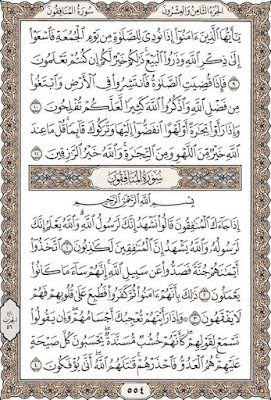 الجزء الثامن والعشرون سورة المنافقون
يَٰٓأَيُّهَا ٱلَّذِينَ ءَامَنُوٓا۟ إِذَا نُودِىَ لِلصَّلَوٰةِ مِن يَوْمِ ٱلْجُمُعَةِ فَٱسْعَوْا۟
إِلَىٰ ذِكْرِ ٱللَّهِ وَذَرُوا۟ ٱلْبَيْعَ ذَٰلِكُمْ خَيْرٌ لَّكُمْ إِن كُنتُمْ تَعْلَمُونَ
٩ فَإِذَا قُضِيَتِ ٱلصَّلَوٰةُ فَٱنتَشِرُوا۟ فِى ٱلْأَرْضِ وَٱبْتَغُوا۟
مِن فَضْلِ ٱللَّهِ وَٱذْكُرُوا۟ ٱللَّهَ كَثِيرًا لَّعَلَّكُمْ تُفْلِحُونَ ١٠
وَإِذَا رَأَوْا۟ تِجَٰرَةً أَوْ لَهْوًا ٱنفَضُّوٓا۟ إِلَيْهَا وَتَرَكُوكَ قَآئِمًا قُلْ مَا عِندَ
ٱللَّهِ خَيْرٌ مِّنَ ٱللَّهْوِ وَمِنَ ٱلتِّجَٰرَةِ وَٱللَّهُ خَيْرُ ٱلرَّٰزِقِينَ ١١
سورة المنافقون
بِسْمِ ٱللَّهِ ٱلرَّحْمَٰنِ ٱلرَّحِيمِ
إِذَا جَآءَكَ ٱلْمُنَٰفِقُونَ قَالُوا۟ نَشْهَدُ إِنَّكَ لَرَسُولُ ٱللَّهِ وَٱللَّهُ يَعْلَمُ إِنَّكَ
لَرَسُولُهُۥ وَٱللَّهُ يَشْهَدُ إِنَّ ٱلْمُنَٰفِقِينَ لَكَٰذِبُونَ ١ ٱتَّخَذُوٓا۟
أَيْمَٰنَهُمْ جُنَّةً فَصَدُّوا۟ عَن سَبِيلِ ٱللَّهِ إِنَّهُمْ سَآءَ مَا كَانُوا۟
يَعْمَلُونَ ٢ ذَٰلِكَ بِأَنَّهُمْ ءَامَنُوا۟ ثُمَّ كَفَرُوا۟ فَطُبِعَ عَلَىٰ قُلُوبِهِمْ فَهُمْ
لَا يَفْقَهُونَ ٣ وَإِذَا رَأَيْتَهُمْ تُعْجِبُكَ أَجْسَامُهُمْ وَإِن يَقُولُوا۟
تَسْمَعْ لِقَوْلِهِمْ كَأَنَّهُمْ خُشُبٌ مُّسَنَّدَةٌ يَحْسَبُونَ كُلَّ صَيْحَةٍ
عَلَيْهِمْ هُمُ ٱلْعَدُوُّ فَٱحْذَرْهُمْ قَٰتَلَهُمُ ٱللَّهُ أَنَّىٰ يُؤْفَكُونَ ٤
٥٥٤